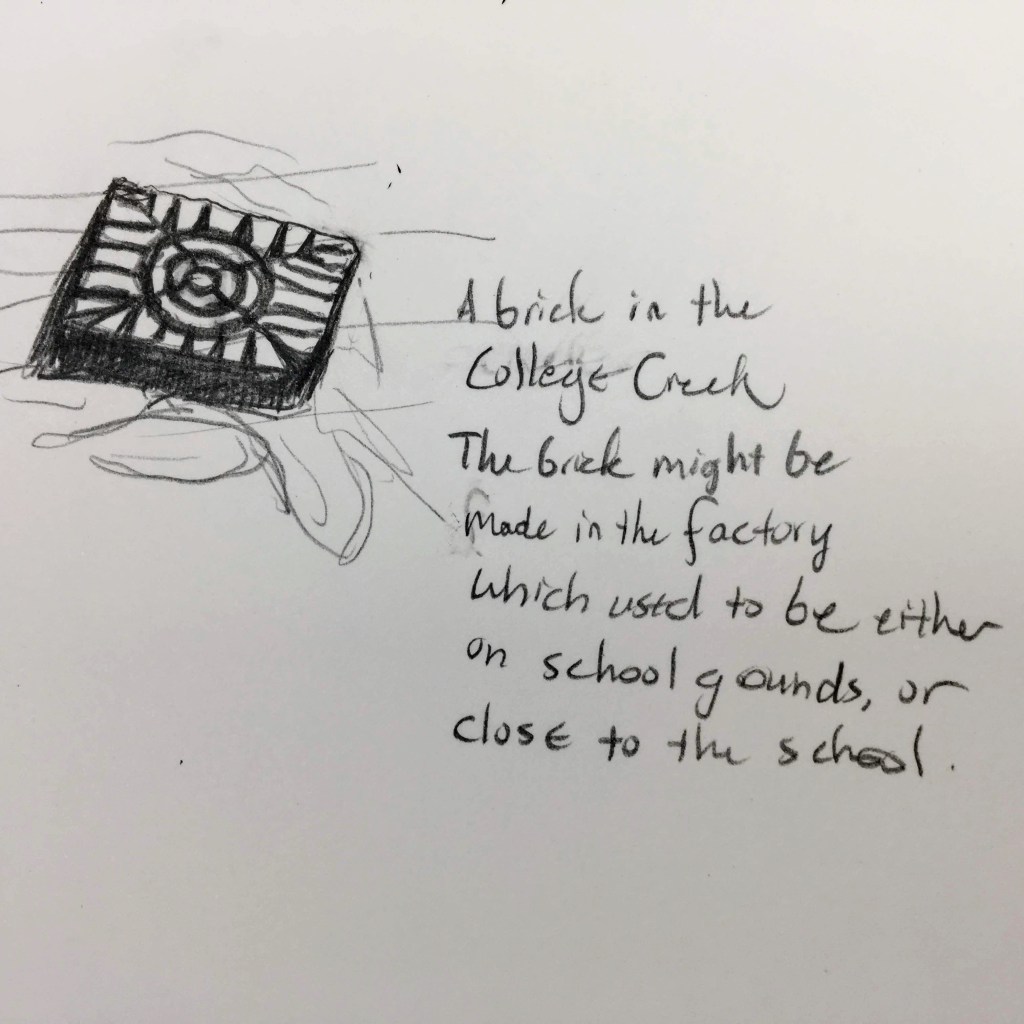 A brick in the
College Creek
The brick might be
made in the factory
which used to be either
on school gounds, or
close to the school.